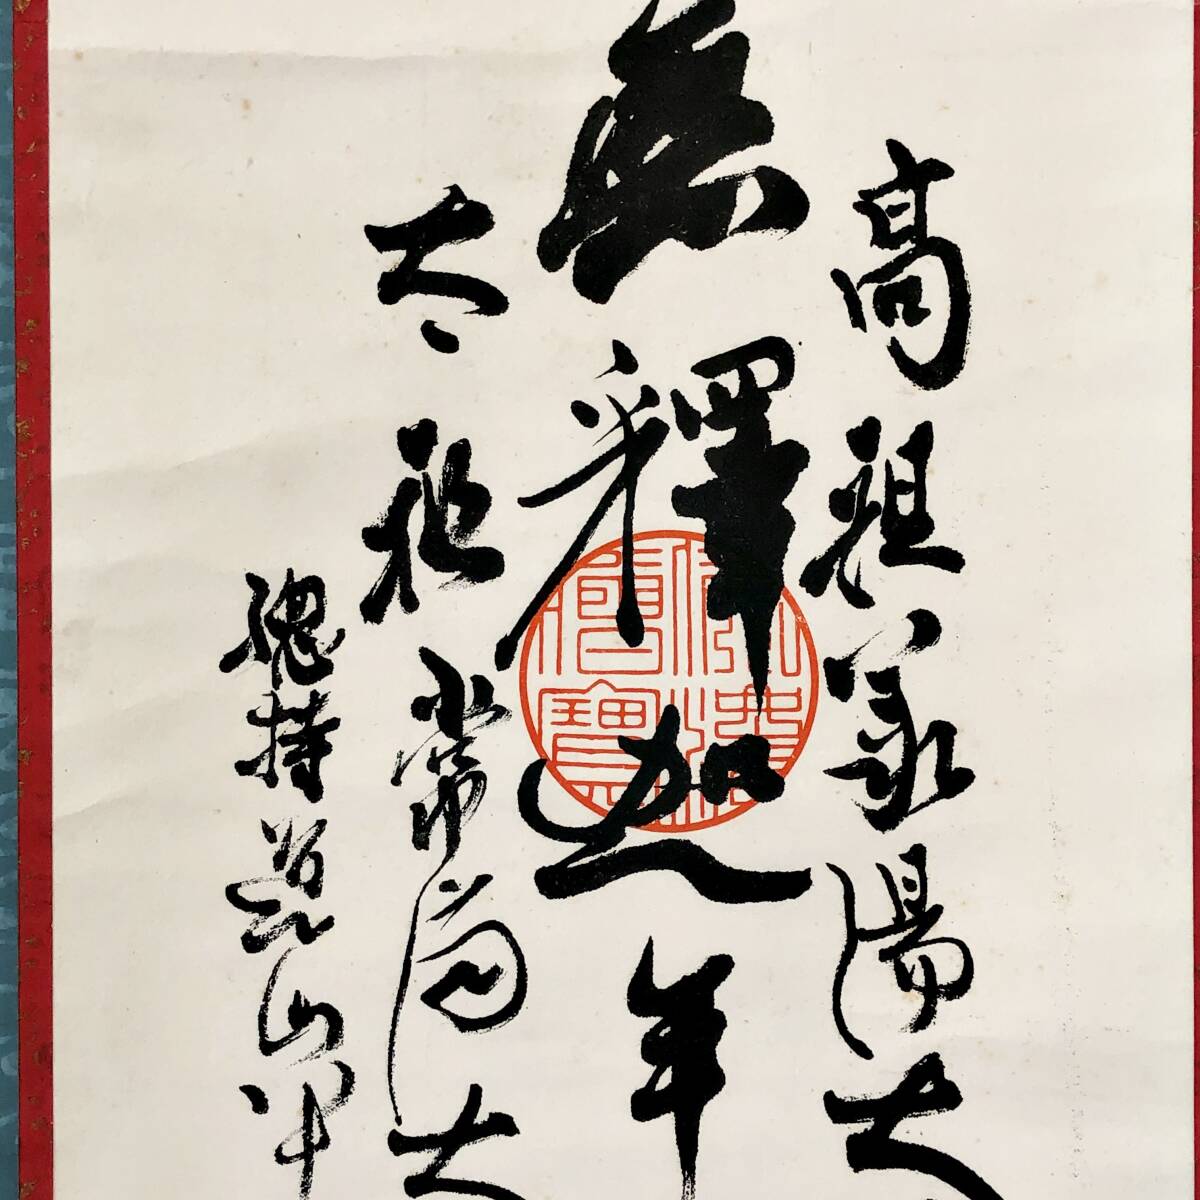 高祖承陽大
無釋迦牟
太祖常済大
總持道山叩
佛法僧寶